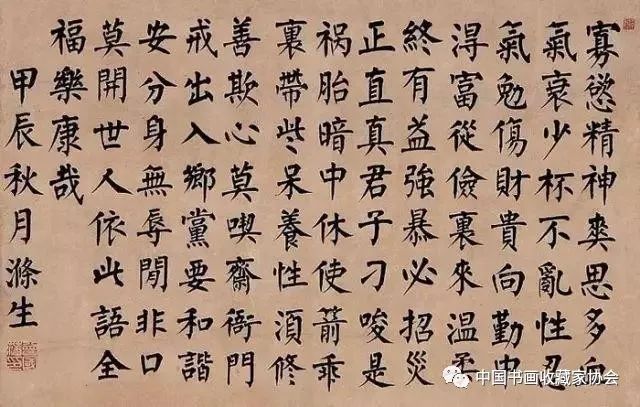 寡慾精神爽思多血
氣衰少杯不亂性忍
氣勉傷財貴向勤中
淂富從儉裏來温柔
終有益強暴必招災
正直真君子刁唆是
祸胎暗中休使箭乖
裏帶些呆養性湏修
善欺心莫喫齋衙門
戒出入鄉黨要和諧
安分身無辱閒非口
莫開世人依此語全
福樂康哉
甲辰秋月滌生
中国书画收藏家协会